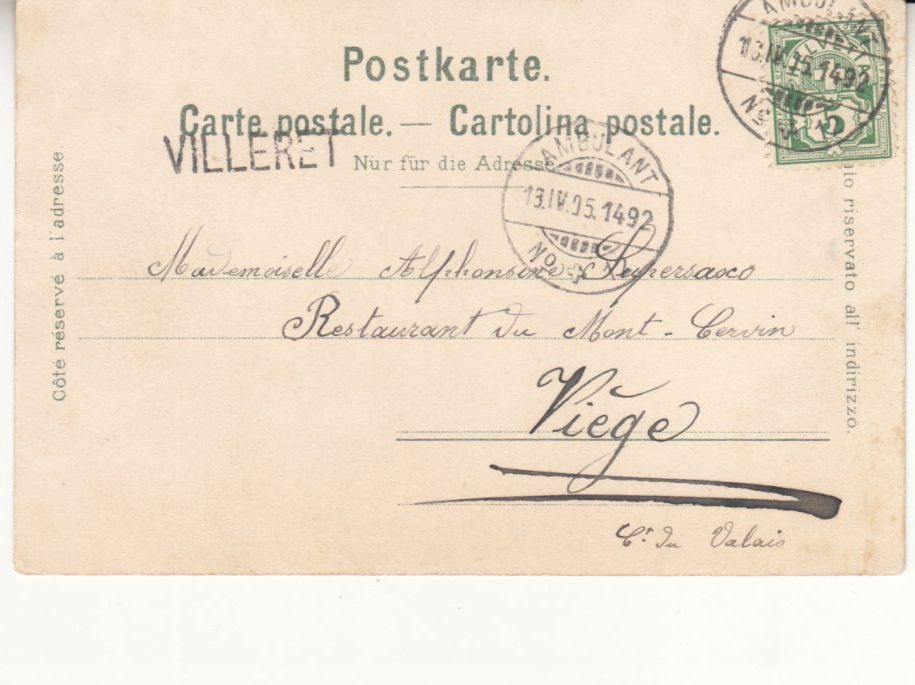 Postkarte.
Carte postale. — Cartolina postale.
VILLERET
Nur für die Adresse
AMBULANT
13.IV.05.1492
No
AMBULANT
13.IV.05.1492
No
HELVETIA
5
Côté réservé à l'adresse.
riservato all' indirizzo.
Mademoiselle Alphonsine Supersaxo
Restaurant du Mont-Cervin
Viège
Ct. du Valais